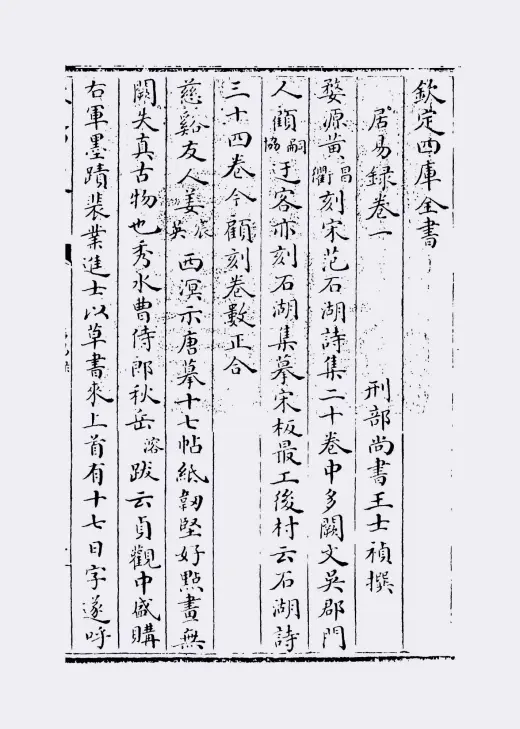 欽定四庫全書
居易録卷一
刑部尚書王士禎撰
婺源黄昌衢刻宋范石湖詩集二十卷中多闕文吳郡門
人顧嗣協迂客亦刻石湖集摹宋板最工後村云石湖詩
三十四卷今顧刻卷數正合
慈谿友人姜宸英西溟示唐摹十七帖紙韌堅好點畫無
闕失真古物也秀水曹侍郎秋岳溶跋云貞觀中盛購
右軍墨蹟裴業進士以草書來上首有十七日字遂呼